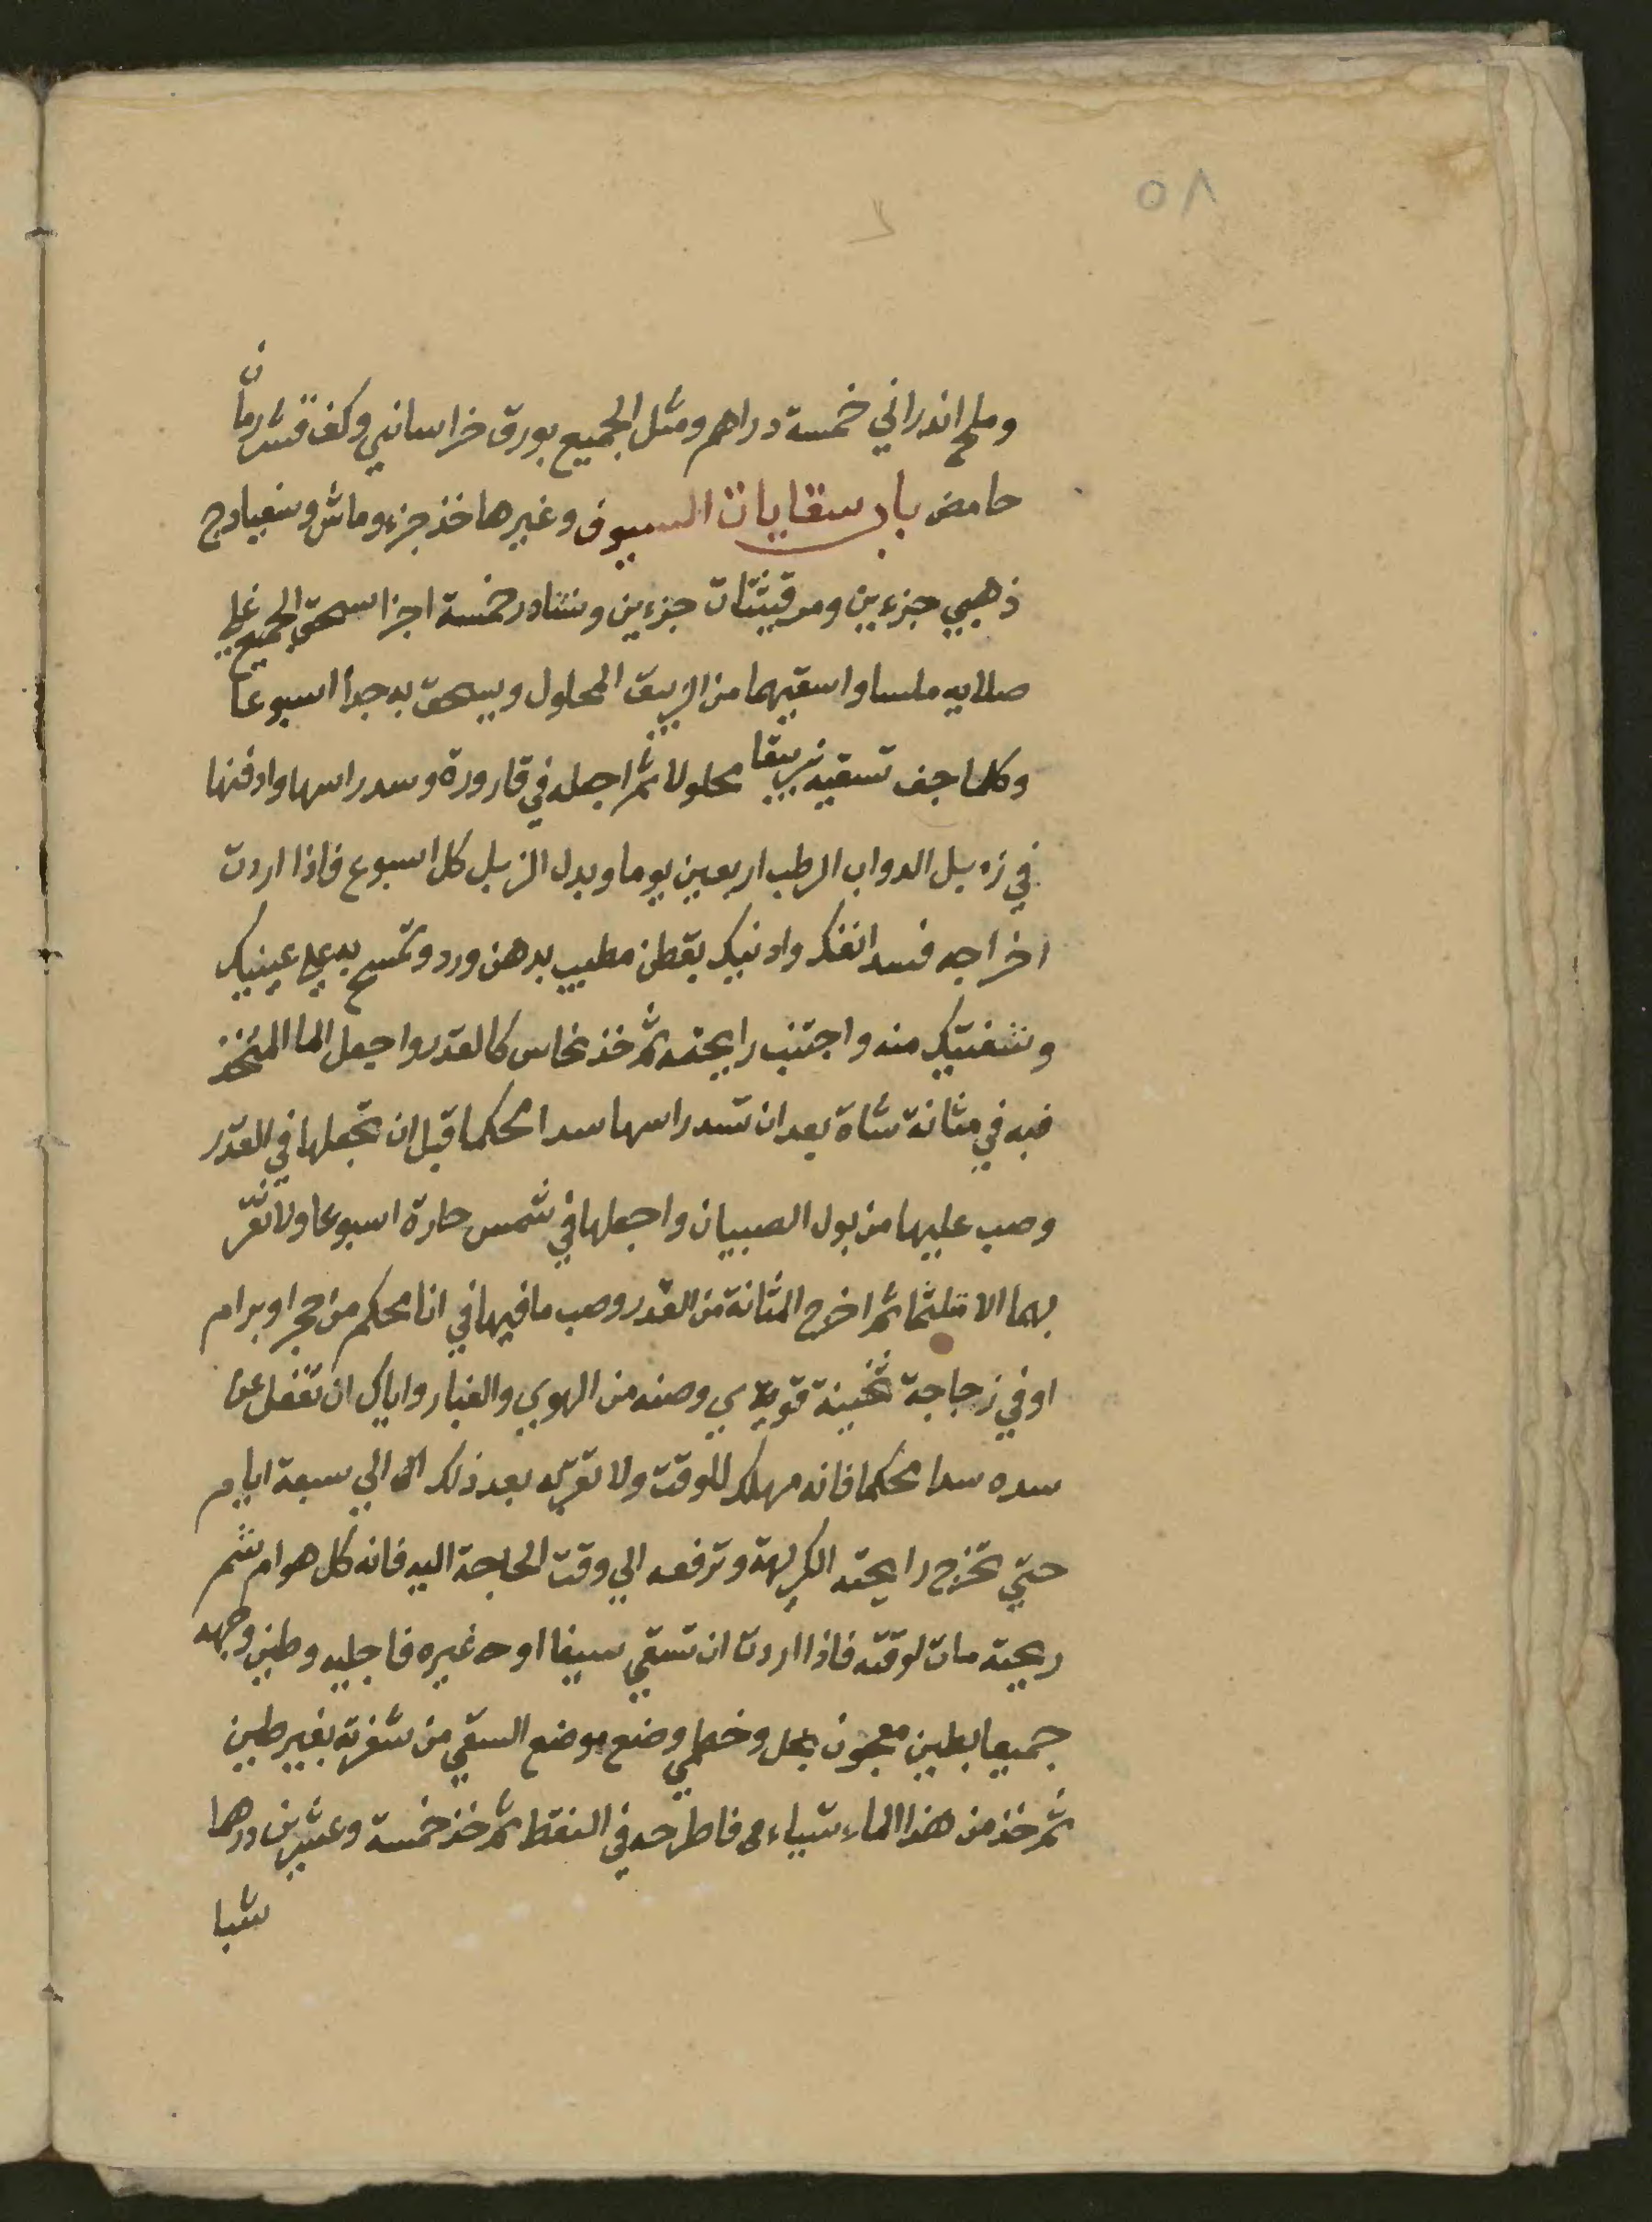 ٥٨
وملح اندراني خمسة دراهم ومثل الجميع بورق خراساني وكف قشر رمان
حامض باب سقايات السيوف وغيرها خذ جزء وماش وسفيادج
ذهبي جزءين ومرقيثات جزءين ونشادر خمسة اجزا سحق الجميع علي
صلايه ملسا واسقيهما من الزيبق المحلول ويسحق به جدا اسبوعا
وكلما جف تسقيه زيبقا محلولا ثم اجعله في قارورة وسد راسها وادفنها
في زبل الدواب الرطب اربعين يوما وبدل الزبل كل اسبوع فاذا اردت
اخراجه فسد انفك واذنيك بقطن مطيب بدهن ورد وتمسح به علي عينيك
وشفتيك منه واجتنب رايحته ثم خذ نحاس كالقدر واجعل الما المتخذ
فيه في مثانة شاة بعد ان تسد راسها سدا محكما قبل ان تجعلها في القدر
وصب عليها من بول الصبيان واجعلها في شمس حارة اسبوعا ولا تقر
بها الا متلثما ثم اخرج المثانة من القدر وصب ما فيها في انا محكم من حجر او برام
او في زجاجة ثخينة قوية وصنه من الهوي والغبار واياك ان تغفل عن
سده سدا محكما فانه مهلك للوقت ولا تقربه بعد ذلك الي سبعة ايام
حتي تخرج رايحته الكريهة وترفعه الي وقت الحاجة اليه فانه كل هوام شم
ريحته مات لوقته فاذا اردت ان تسقي سيفا او غيره فاجليه وطين وجهه
جميعا بطين معجون بخل وخطمي وضع موضع السقي من شفرته بغير طين
ثم خذ من هذا الماء شياء فاطرحه في النفط ثم خذ خمسة وعشرين درهما
شبا